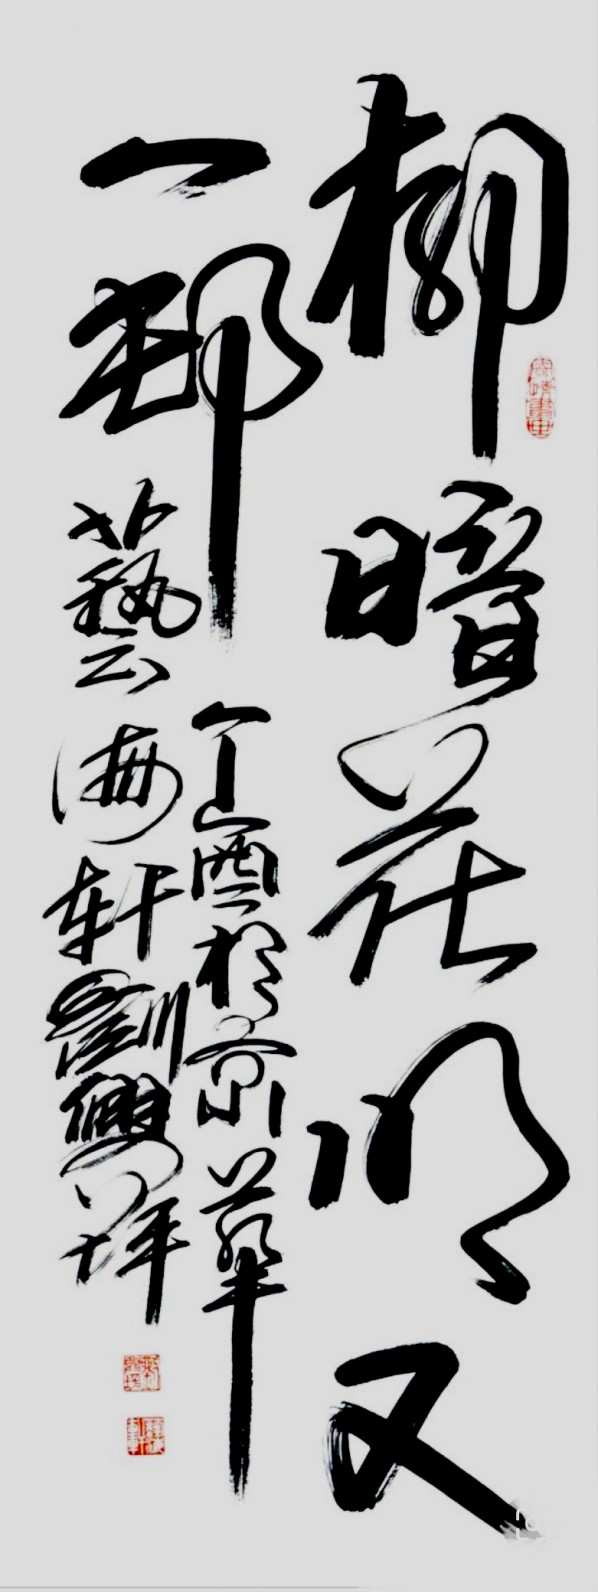 柳暗花明又
一邨
丁酉於京華
藝雲海軒劉興祥